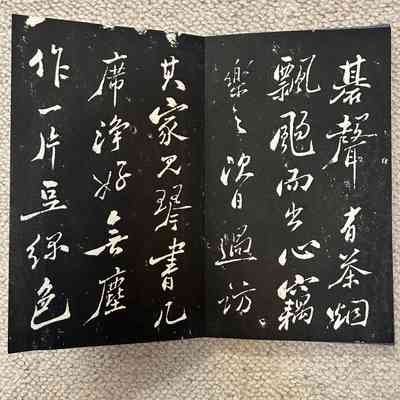 碁聲有茶烟
飄颺而出心竊
樂之次日過坊
其家見琴書几
席淨好無塵
作一片豆綠色